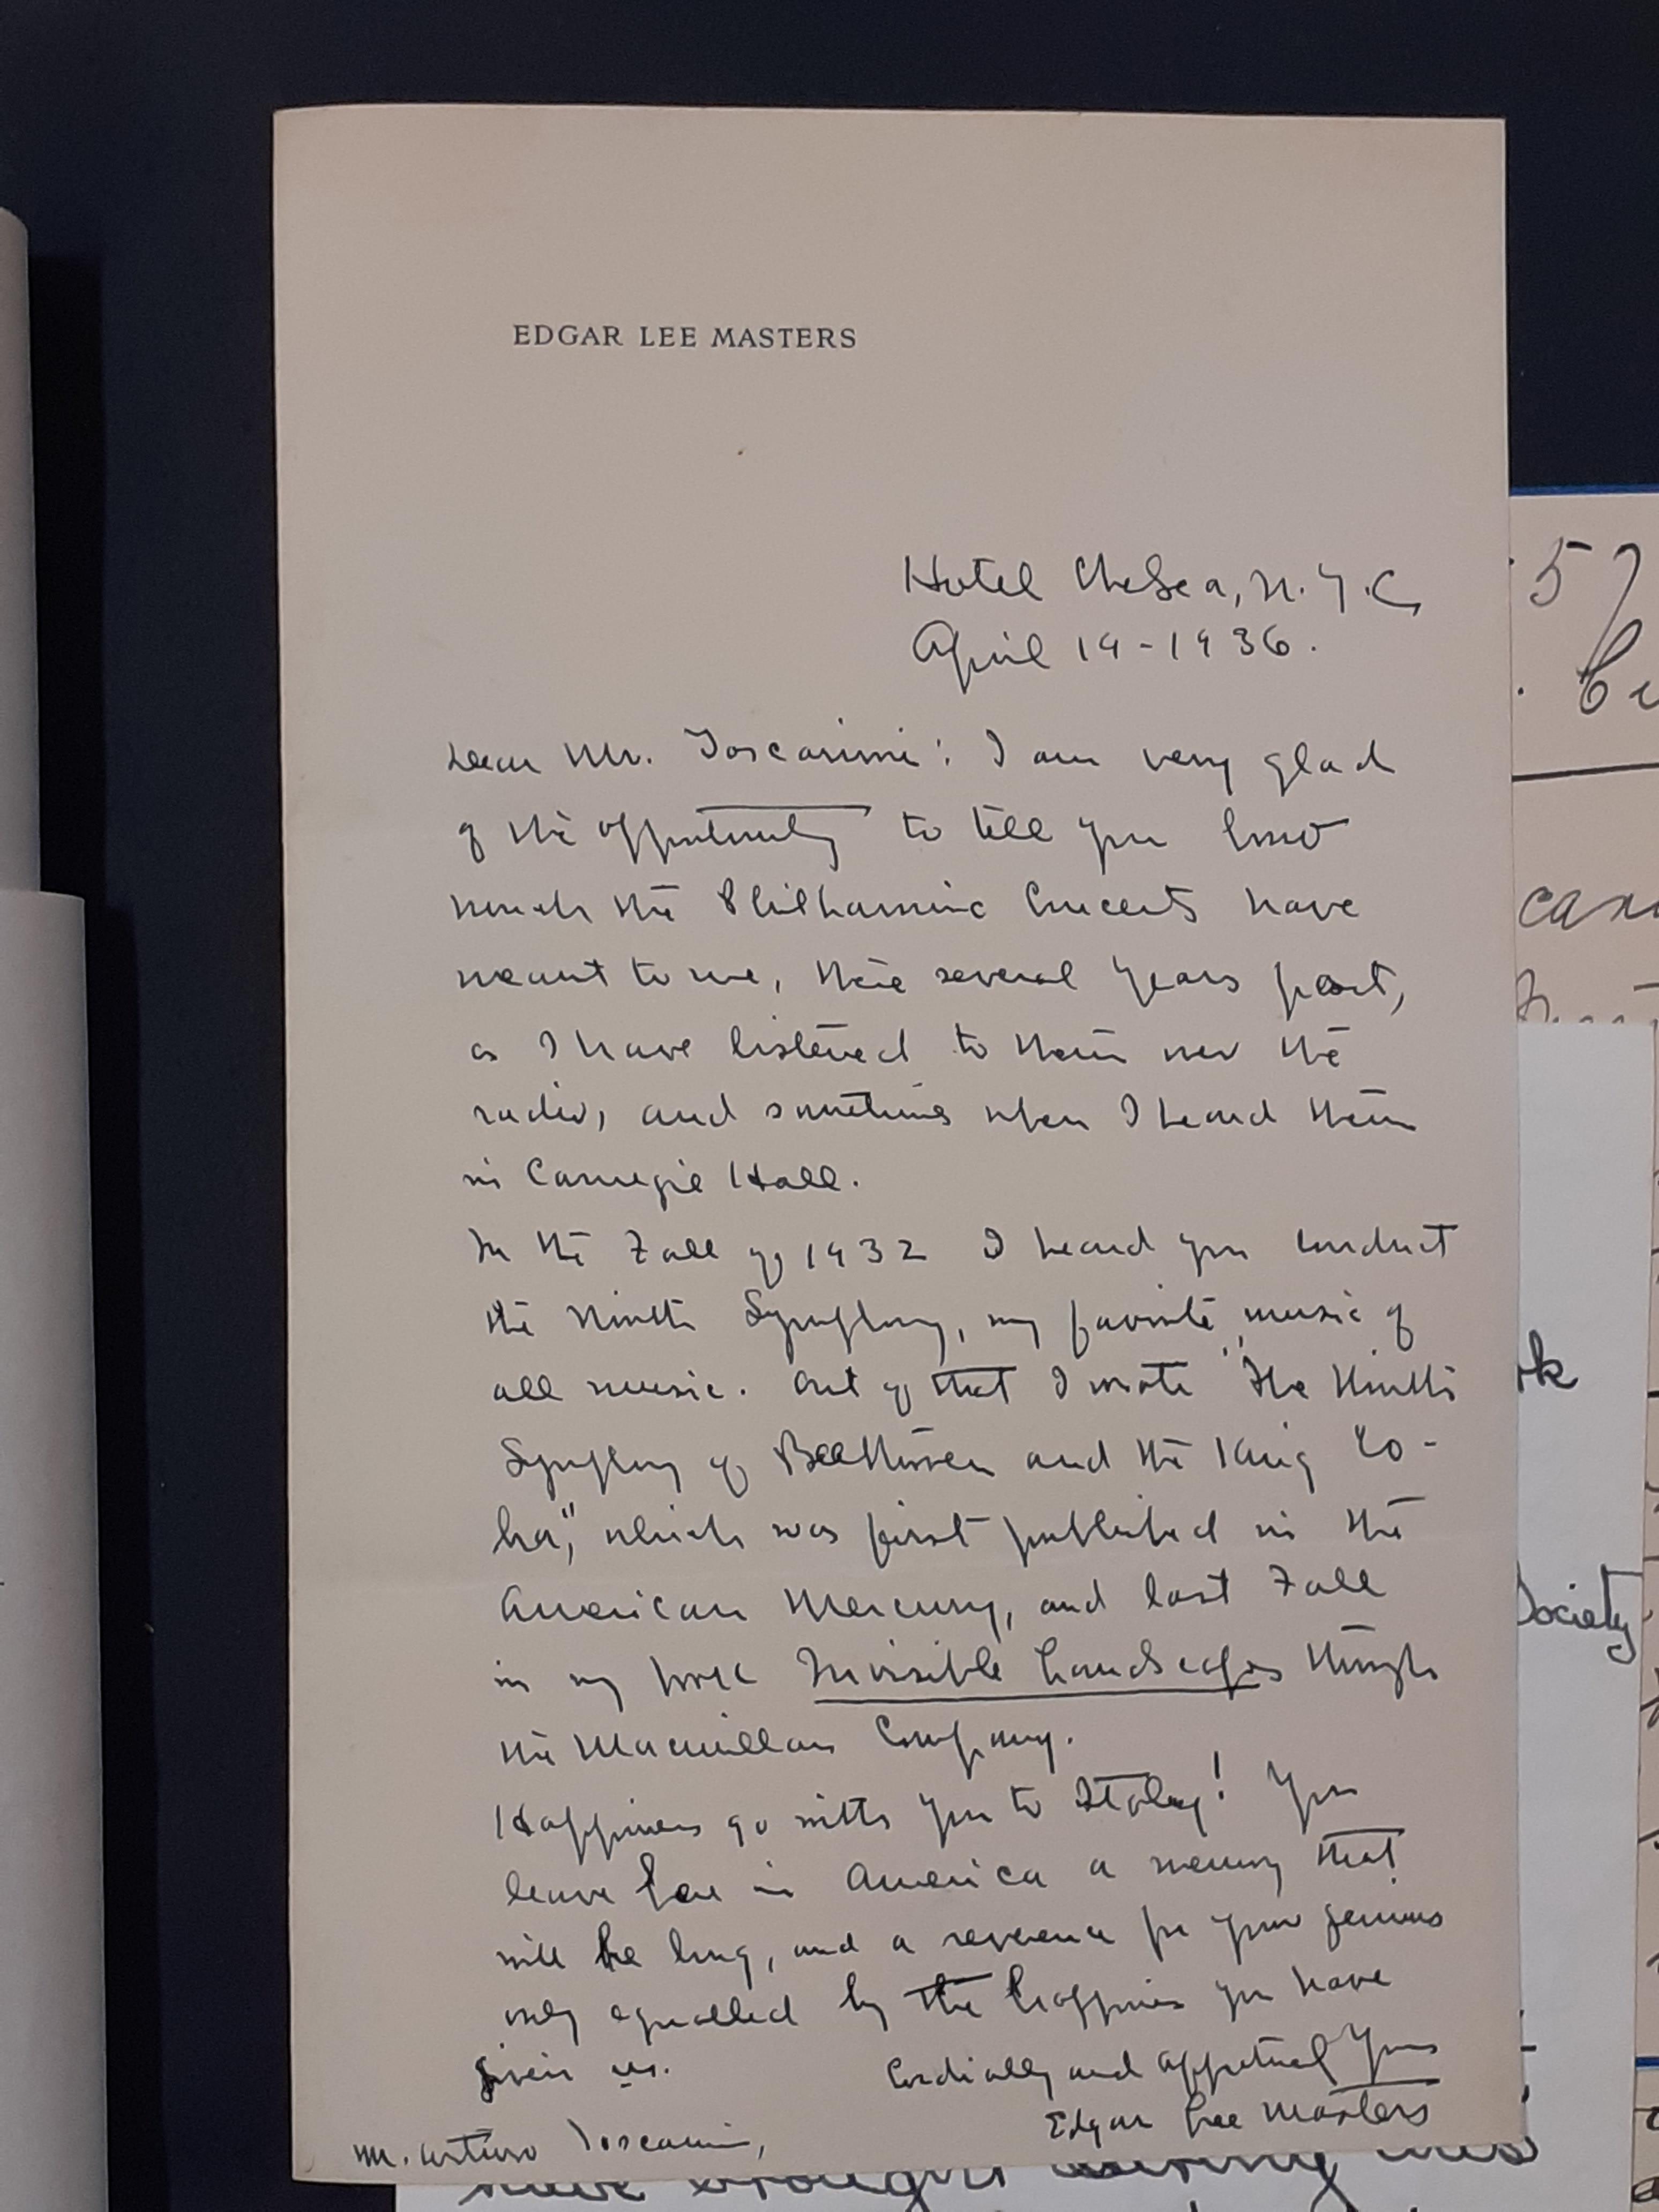 EDGAR LEE MASTERS
Hotel Chelsea, N.Y.C,
April 19-1936.
Dear Mr. Toscanini: I am very glad
of the opportunity to tell you how
much the Philharmonic Concerts have
meant to me, these several years past,
as I have listened to them over the
radio, and sometimes when I heard them
in Carnegie Hall.
In the Fall of 1932 I heard you conduct
the Ninth Symphony, my favorite music of
all music. Out of that I wrote "The Ninth
Symphony of Beethoven and the King Co-
bra", which was first published in the
American Mercury, and last Fall
in my book Invisible Landscapes through
the Macmillan Company.
Happiness go with you to Italy! You
leave here in America a memory that
will be long, and a reverence for your genius
only equalled by the happiness you have
given us.
Cordially and Yours
Edgar Lee Masters
Mr. Arturo Toscanini,
57
rk
Society
have brought during this